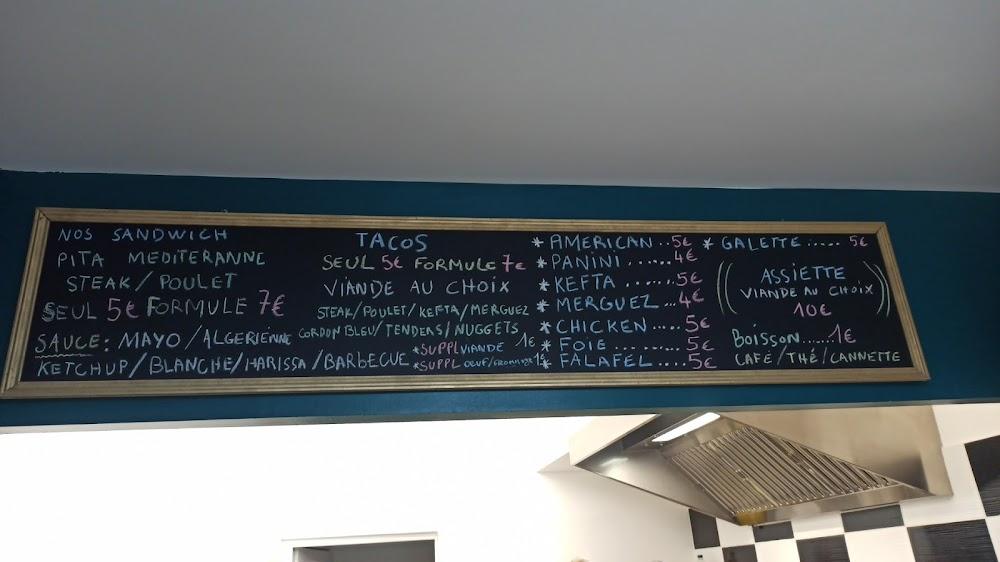 NOS SANDWICH
PITA MEDITERANNE
STEAK/POULET
SEUL 5€ FORMULE 7€
SAUCE: MAYO/ALGERIENNE
KETCHUP/BLANCHE/HARISSA/BARBECUE
TACOS
SEUL 5€ FORMULE 7€
VIANDE AU CHOIX
STEAK/POULET/KEFTA/MERGUEZ
CORDON BLEU/TENDERS/NUGGETS
*SUPPL VIANDE 1€
*SUPPL OEUF/FROMAGE 1€
* AMERICAN .. 5€
* PANINI ..... 4€
* KEFTA ...... 5€
* MERGUEZ ... 4€
* CHICKEN ..... 5€
* FOIE ........ 5€
* FALAFEL .... 5€
* GALETTE ..... 5€
ASSIETTE
VIANDE AU CHOIX
10€
BOISSON ...... 1€
CAFÉ/THÉ/CANNETTE